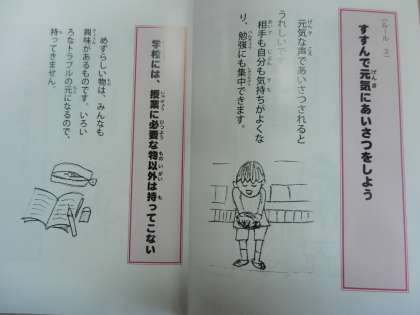 〈ルール 2〉
すすんで元気にあいさつをしよう
元気な声であいさつされると
うれしいです。
相手も自分も気持ちがよくな
り、勉強にも集中できます。
学校には、授業に必要な物以外は持ってこない
めずらしい物は、みんなも
興味があるものです。いろい
ろなトラブルの元になるので、
持ってきません。